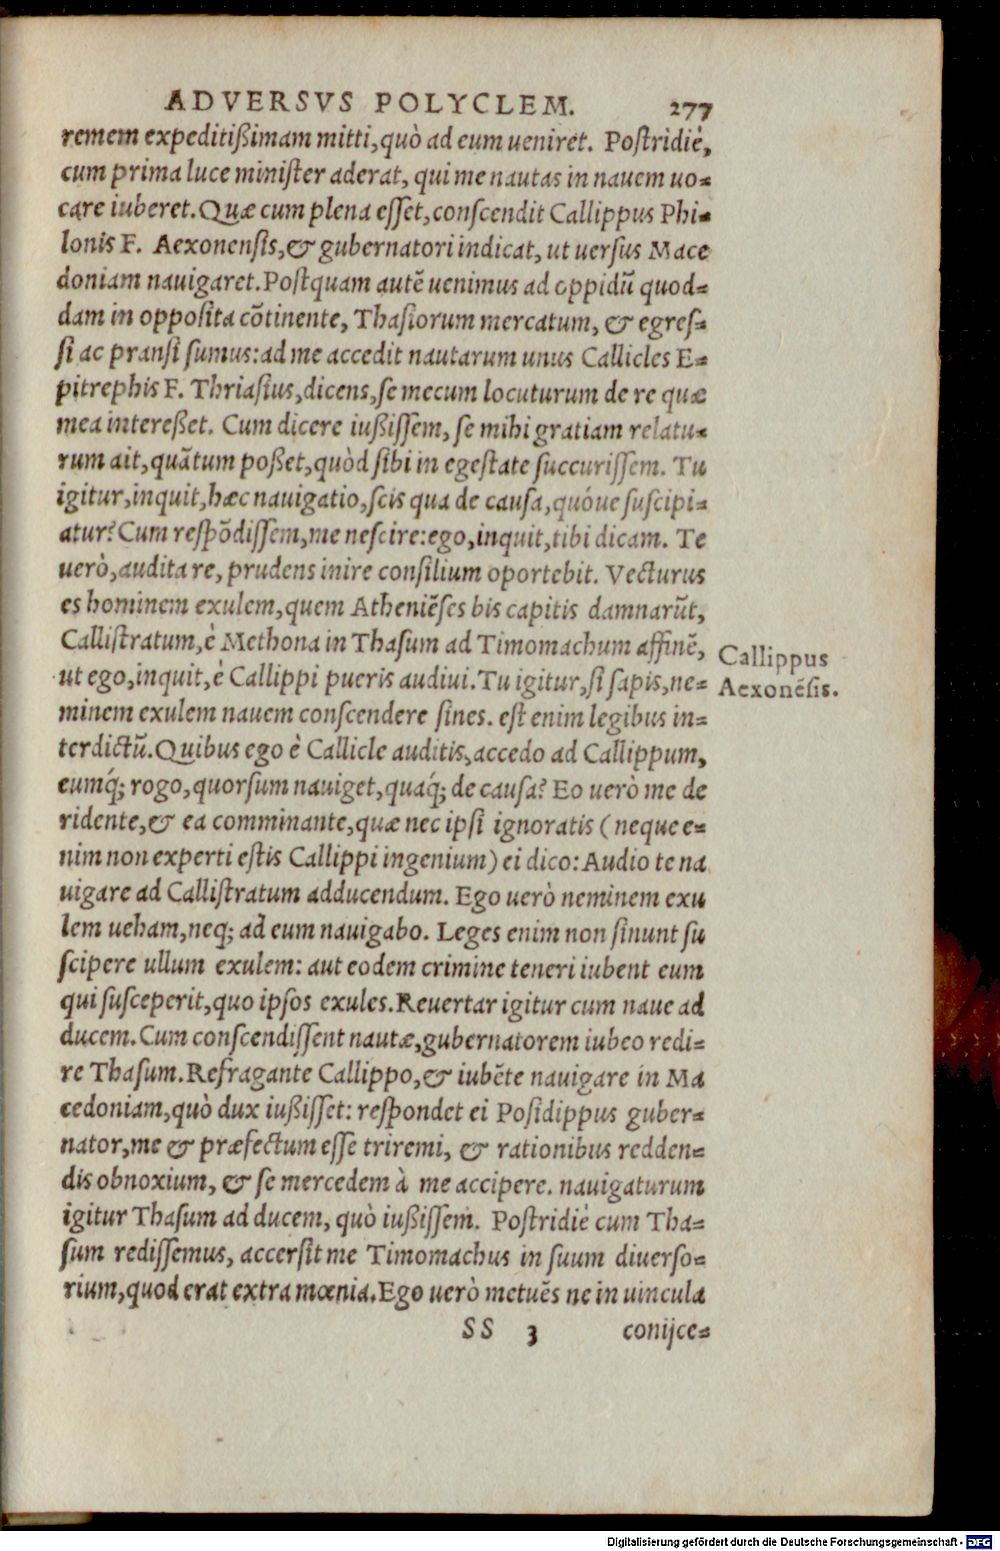 ADVERSVS POLYCLEM. 277
remem expeditißimam mitti, quò ad eum ueniret. Postridiè,
cum prima luce minister aderat, qui me nautas in nauem uo-
care iuberet. Quæ cum plena esset, conscendit Callippus Phi-
lonis F. Aexonensis, & gubernatori indicat, ut uersus Mace
doniam nauigaret. Postquam autē uenimus ad oppidū quod-
dam in opposita cōtinente, Thasiorum mercatum, & egres-
si ac pransi sumus: ad me accedit nautarum unus Callicles E-
pitrephis F. Thriasius, dicens, se mecum locuturum de re quæ
mea intereßet. Cum dicere iußissem, se mihi gratiam relatu-
rum ait, quātum poßet, quòd sibi in egestate succurissem. Tu
igitur, inquit, hæc nauigatio, scis qua de causa, quóue suscipi-
atur? Cum respōdissem, me nescire: ego, inquit, tibi dicam. Te
uerò, audita re, prudens inire consilium oportebit. Vecturus
es hominem exulem, quem Atheniēses bis capitis damnarūt,
Callistratum, è Methona in Thasum ad Timomachum affinē,
ut ego, inquit, è Callippi pueris audiui. Tu igitur, si sapis, ne-
minem exulem nauem conscendere sines. est enim legibus in-
terdictū. Quibus ego è Callicle auditis, accedo ad Callippum,
eumq́; rogo, quorsum nauiget, quaq́; de causa? Eo uerò me de
ridente, & ea comminante, quæ nec ipsi ignoratis (neque e-
nim non experti estis Callippi ingenium) ei dico: Audio te na
uigare ad Callistratum adducendum. Ego uerò neminem exu
lem ueham, neq; ad eum nauigabo. Leges enim non sinunt su
scipere ullum exulem: aut eodem crimine teneri iubent eum
qui susceperit, quo ipsos exules. Reuertar igitur cum naue ad
ducem. Cum conscendissent nautæ, gubernatorem iubeo redi-
re Thasum. Refragante Callippo, & iubēte nauigare in Ma
cedoniam, quò dux iußisset: respondet ei Posidippus guber-
nator, me & præfectum esse triremi, & rationibus redden-
dis obnoxium, & se mercedem à me accipere. nauigaturum
igitur Thasum ad ducem, quò iußissem. Postridiè cum Tha-
sum redissemus, accersit me Timomachus in suum diuerso-
rium, quod erat extra mœnia. Ego uerò metuēs ne in uincula
SS 3 conijce-
Callippus
Aexonēsis.
Digitalisierung gefördert durch die Deutsche Forschungsgemeinschaft - DFG